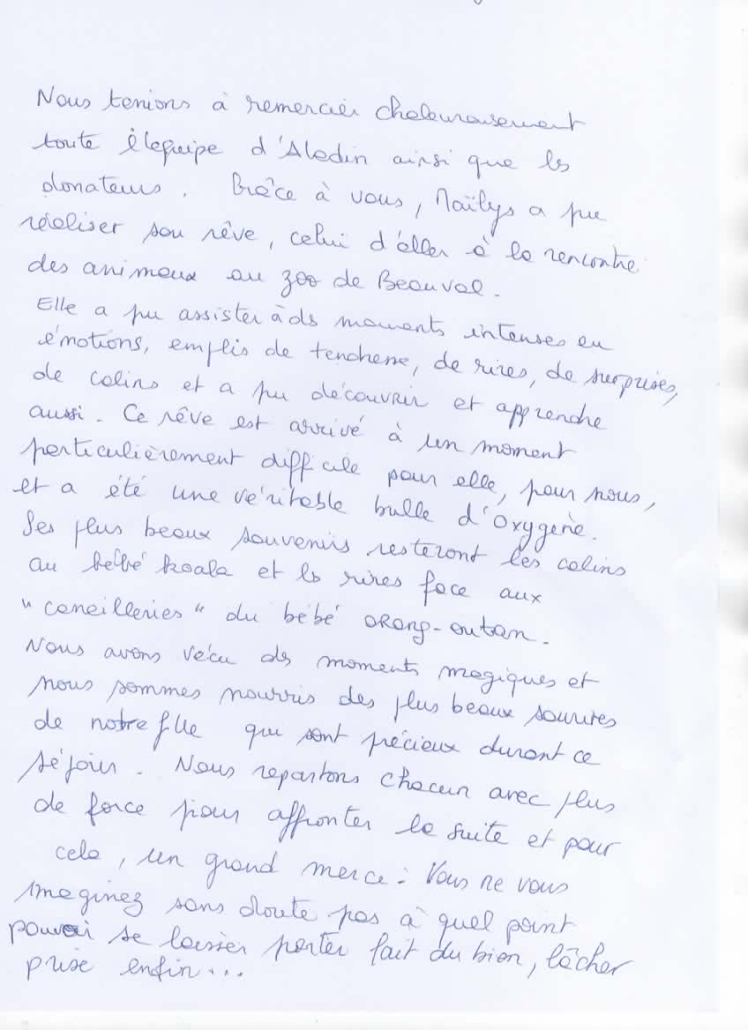 Nous tenions à remercier chaleureusement
toute l'équipe d'Aladin ainsi que les
donateurs. Grâce à vous, Naïlys a pu
réaliser son rêve, celui d'aller à la rencontre
des animaux au zoo de Beauval.
Elle a pu assister à ds moments intenses en
émotions, emplis de tendresse, de rires, de surprises,
de calins et a pu découvrir et apprendre
aussi. Ce rêve est arrivé à un moment
particulièrement difficile pour elle, pour nous,
et a été une véritable bulle d'oxygène.
Ses plus beaux souvenirs resteront les calins
au bébé koala et ls rires face aux
"caneilleries" du bébé orang-outan.
Nous avons vécu ds moments magiques et
nous sommes nourris des plus beaux sourires
de notre fille qui sont précieux durant ce
séjour. Nous repartons chacun avec plus
de force pour affronter la suite et pour
cela, un grand merci. Vous ne vous
imaginez sans doute pas à quel point
pouvoir se laisser porter fait du bien, lâcher
prise enfin...